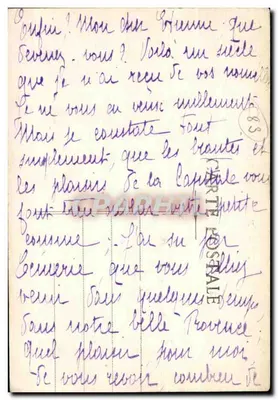 Enfin ? Mon cher Etienne que
devenez-vous ? Voilà un siècle
que je n'ai reçu de vos nouvelles
Je ne vous en veux nullement
Mais je constate tout
simplement, que les beautés et
les plaisirs de la Capitale vous
font petite
cousine. J'ai su par
que vous
venir dans quelques temps
dans notre belle Provence
Quel plaisir pour moi
de vous revoir combien de
CARTE POSTALE
83